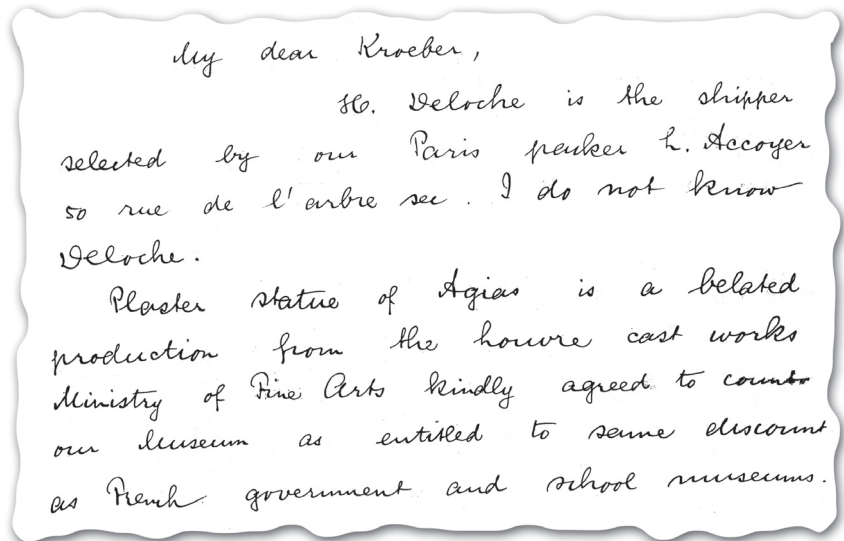 My dear Kroeber,
H. Deloche is the shipper
selected by our Paris packer L. Accoyer
50 rue de l'arbre sec. I do not know
Deloche.
Plaster statue of Agias is a belated
production from the Louvre cast works
Ministry of Fine Arts kindly agreed to count
our Museum as entitled to same discount
as French government and school museums.